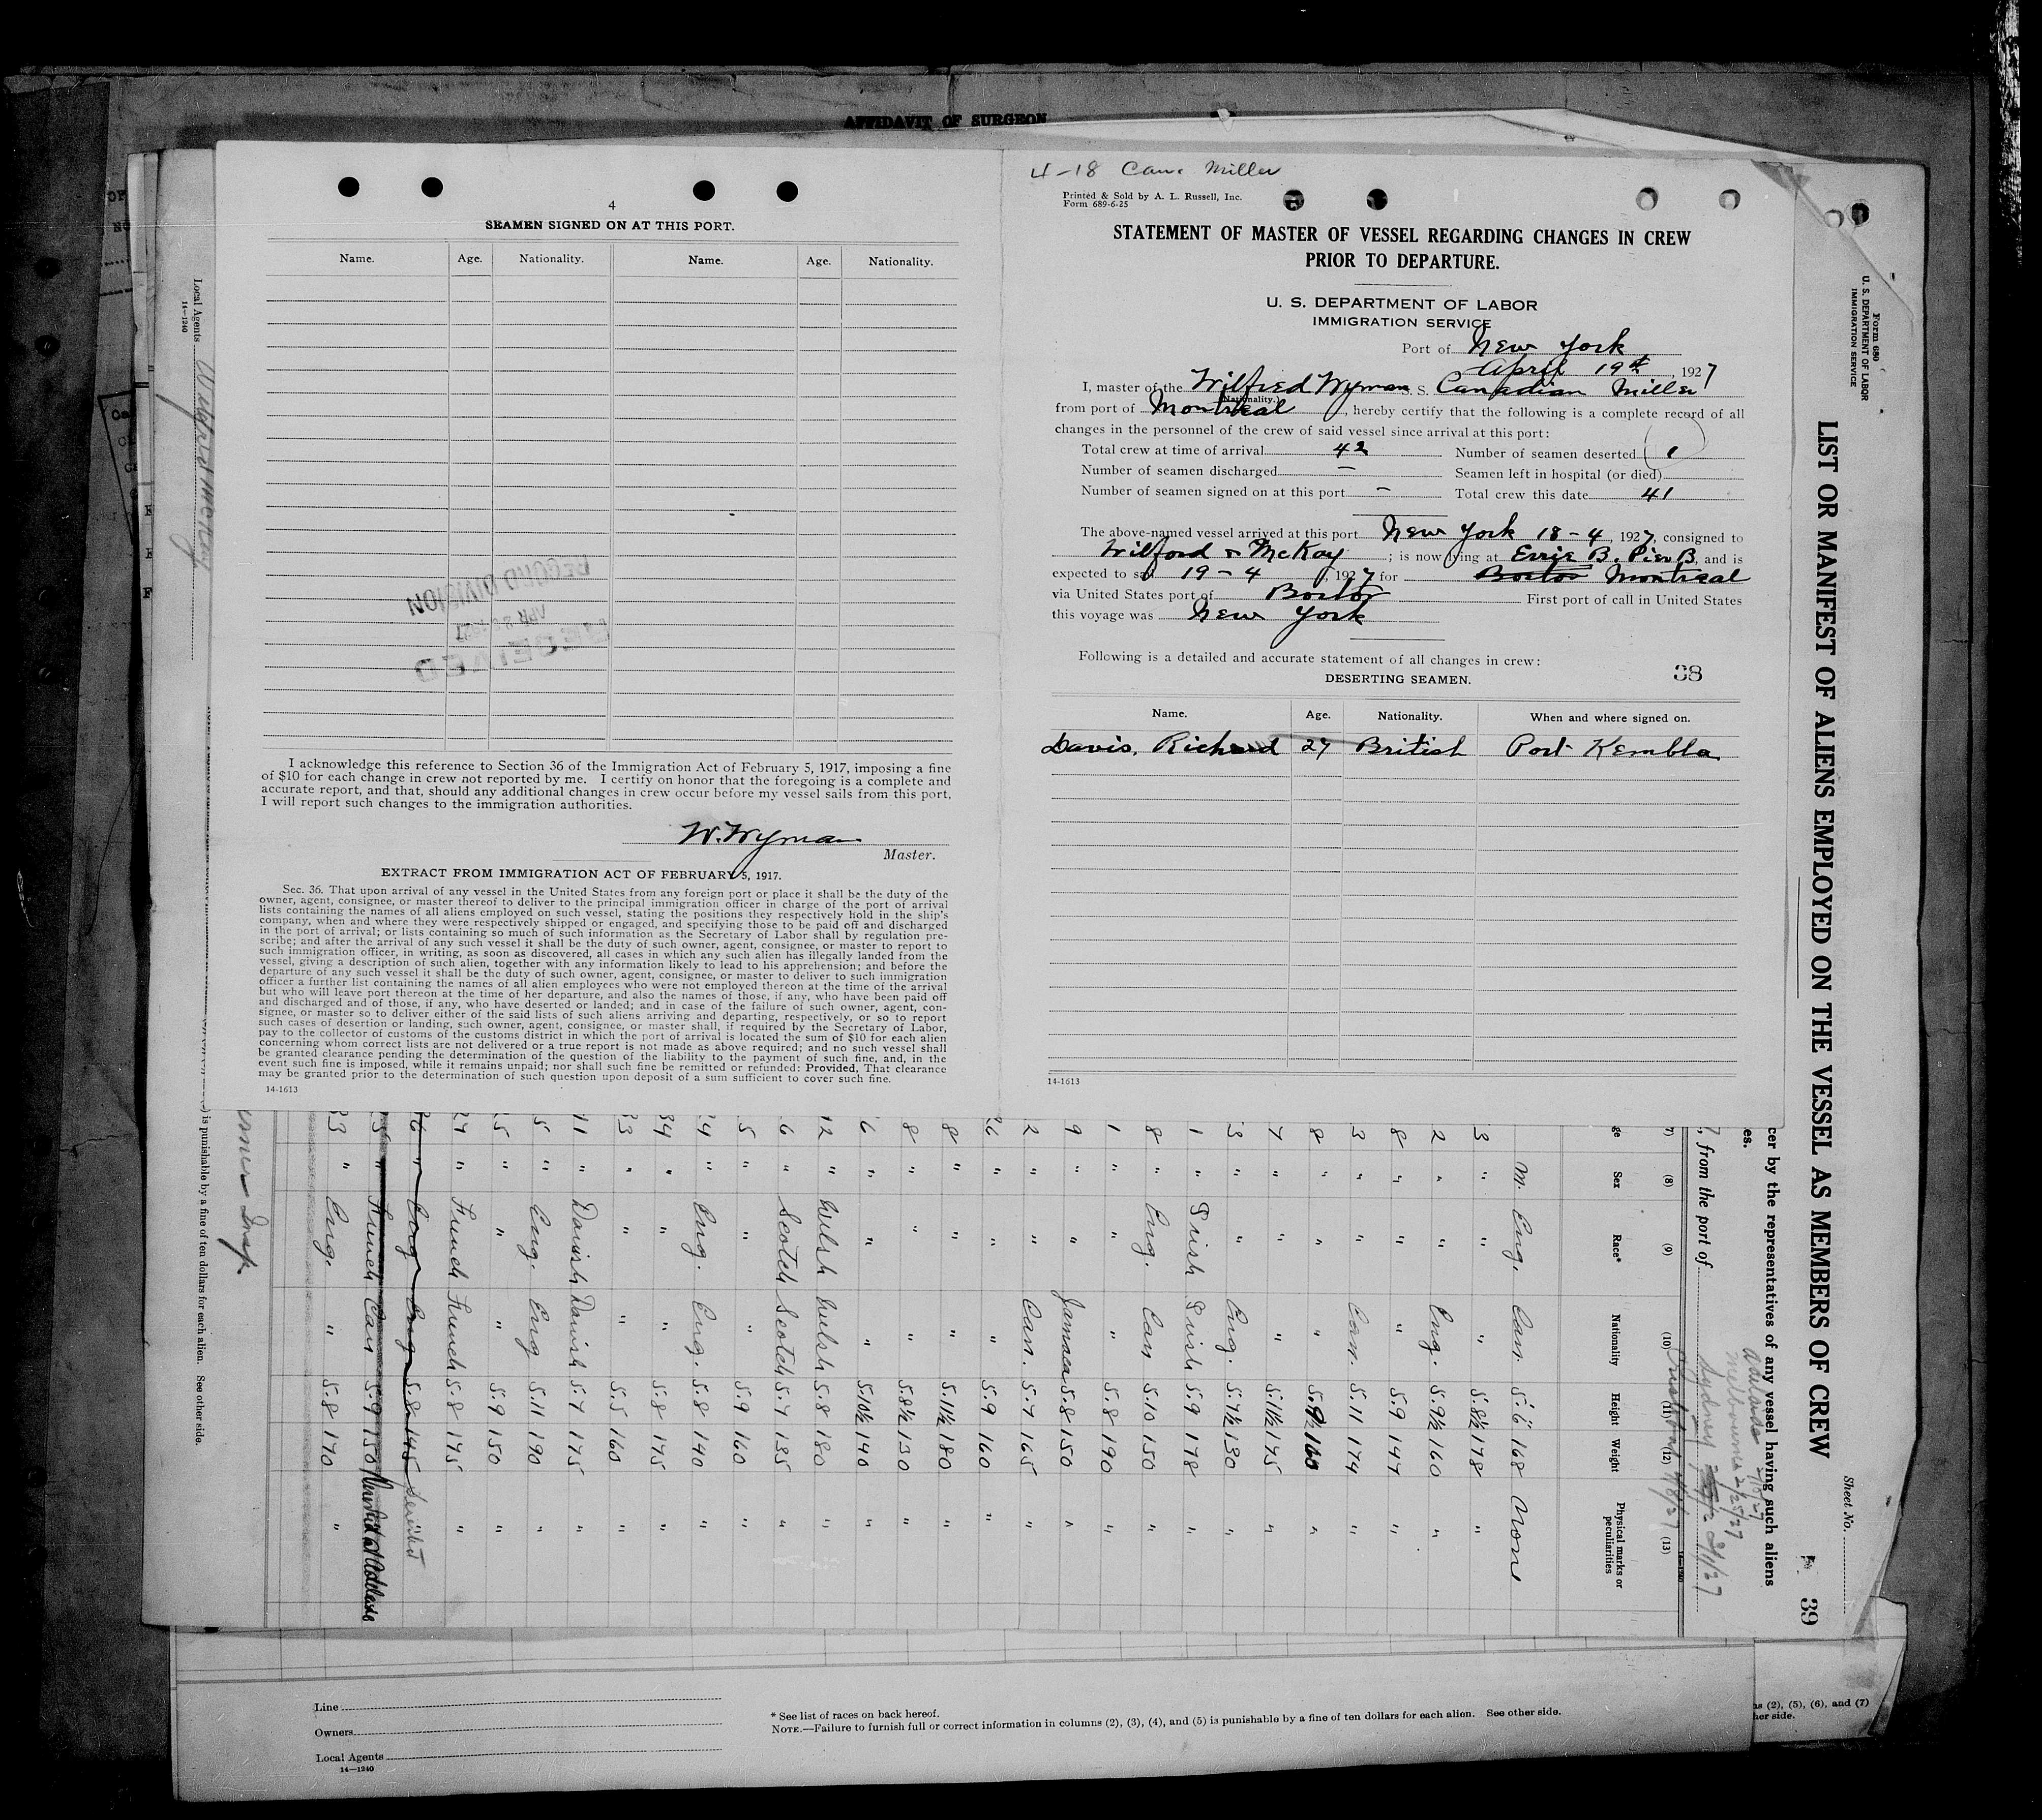 AFFIDAVIT OF SURGEON
4
SEAMEN SIGNED ON AT THIS PORT.
Name. Age. Nationality. Name. Age. Nationality.
RECEIVED
APR 1927
RECORD DIVISION
I acknowledge this reference to Section 36 of the Immigration Act of February 5, 1917, imposing a fine
of $10 for each change in crew not reported by me. I certify on honor that the foregoing is a complete and
accurate report, and that, should any additional changes in crew occur before my vessel sails from this port,
I will report such changes to the immigration authorities.
W. Wyman
Master.
EXTRACT FROM IMMIGRATION ACT OF FEBRUARY 5, 1917.
Sec. 36. That upon arrival of any vessel in the United States from any foreign port or place it shall be the duty of the
owner, agent, consignee, or master thereof to deliver to the principal immigration officer in charge of the port of arrival
lists containing the names of all aliens employed on such vessel, stating the positions they respectively hold in the ship's
company, when and where they were respectively shipped or engaged, and specifying those to be paid off and discharged
in the port of arrival; or lists containing so much of such information as the Secretary of Labor shall by regulation pre-
scribe; and after the arrival of any such vessel it shall be the duty of such owner, agent, consignee, or master to report to
such immigration officer, in writing, as soon as discovered, all cases in which any such alien has illegally landed from the
vessel, giving a description of such alien, together with any information likely to lead to his apprehension; and before the
departure of any such vessel it shall be the duty of such owner, agent, consignee, or master to deliver to such immigration
officer a further list containing the names of all alien employees who were not employed thereon at the time of the arrival
but who will leave port thereon at the time of her departure, and also the names of those, if any, who have been paid off
and discharged and of those, if any, who have deserted or landed; and in case of the failure of such owner, agent, con-
signee, or master so to deliver either of the said lists of such aliens arriving and departing, respectively, or so to report
such cases of desertion or landing, such owner, agent, consignee, or master shall, if required by the Secretary of Labor,
pay to the collector of customs of the customs district in which the port of arrival is located the sum of $10 for each alien
concerning whom correct lists are not delivered or a true report is not made as above required; and no such vessel shall
be granted clearance pending the determination of the question of the liability to the payment of such fine, and, in the
event such fine is imposed, while it remains unpaid; nor shall such fine be remitted or refunded: Provided, That clearance
may be granted prior to the determination of such question upon deposit of a sum sufficient to cover such fine.
14-1613
4-18 Can. Miller
Printed & Sold by A. L. Russell, Inc.
Form 689-6-25
STATEMENT OF MASTER OF VESSEL REGARDING CHANGES IN CREW
PRIOR TO DEPARTURE.
U. S. DEPARTMENT OF LABOR
IMMIGRATION SERVICE
Port of New York
April 19th, 1927
I, master of the Wilfred Wyman S. S. Canadian Miller
(Nationality.)
from port of Montreal, hereby certify that the following is a complete record of all
changes in the personnel of the crew of said vessel since arrival at this port:
Total crew at time of arrival 42 Number of seamen deserted 1
Number of seamen discharged — Seamen left in hospital (or died)
Number of seamen signed on at this port — Total crew this date 41
The above-named vessel arrived at this port New York 18-4, 1927, consigned to
Wilford & McKay; is now lying at Errie B. Pier B, and is
expected to sail 19-4, 1927 for Boston Montreal
via United States port of Boston First port of call in United States
this voyage was New York
Following is a detailed and accurate statement of all changes in crew:
38
DESERTING SEAMEN.
Name. Age. Nationality. When and where signed on.
Davis, Richard 27 British Port Kembla
14-1613
Form 680
U. S. DEPARTMENT OF LABOR
IMMIGRATION SERVICE
LIST OR MANIFEST OF ALIENS EMPLOYED ON THE VESSEL AS MEMBERS OF CREW
Sheet No.
39
cer by the representatives of any vessel having such aliens
es.
, from the port of
Adelaide
Melbourne 2/25/27
Sydney
(7) (8) (9) (10) (11) (12) (13)
ge Sex Race* Nationality Height Weight Physical marks or peculiarities
M. Eng. Can. 5.6 168 Non
3 " " " 5.8½ 178 "
2 " " Eng. 5.9½ 160 "
8 " " " 5.9 147 "
3 " " Can. 5.11 174 "
8 " " " 5.9½ 160 "
7 " " " 5.11½ 175 "
3 " " Eng. 5.7½ 130 "
1 " Irish Irish 5.9 178 "
8 " Eng. Can 5.10 150 "
1 " " " 5.8 190 "
9 " " Jamaca 5.8 150 "
2 " " Can. 5.7 165 "
26 " " " 5.9 160 "
8 " " " 5.11½ 180 "
8 " " " 5.8½ 130 "
6 " " " 5.10½ 140 "
12 " Welsh Welsh 5.8 180 "
6 " Scotch Scotch 5.7 135 "
5 " " " 5.9 160 "
24 " Eng. Eng. 5.8 140 "
34 " " " 5.8 175 "
33 " " " 5.5 160 "
11 " Danish Danish 5.7 175 "
5 " Eng. Eng 5.11 190 "
5 " " " 5.9 150 "
24 " French French 5.8 175 "
26 " Eng Eng 5.8 145
5 " French Can 5.9 150
33 " Eng. " 5.8 170 "
Local Agents
14-1240
is punishable by a fine of ten dollars for each alien. See other side.
Line
Owners
Local Agents
14-1240
* See list of races on back hereof.
NOTE.—Failure to furnish full or correct information in columns (2), (3), (4), and (5) is punishable by a fine of ten dollars for each alien. See other side.
ns (2), (5), (6), and (7)
her side.